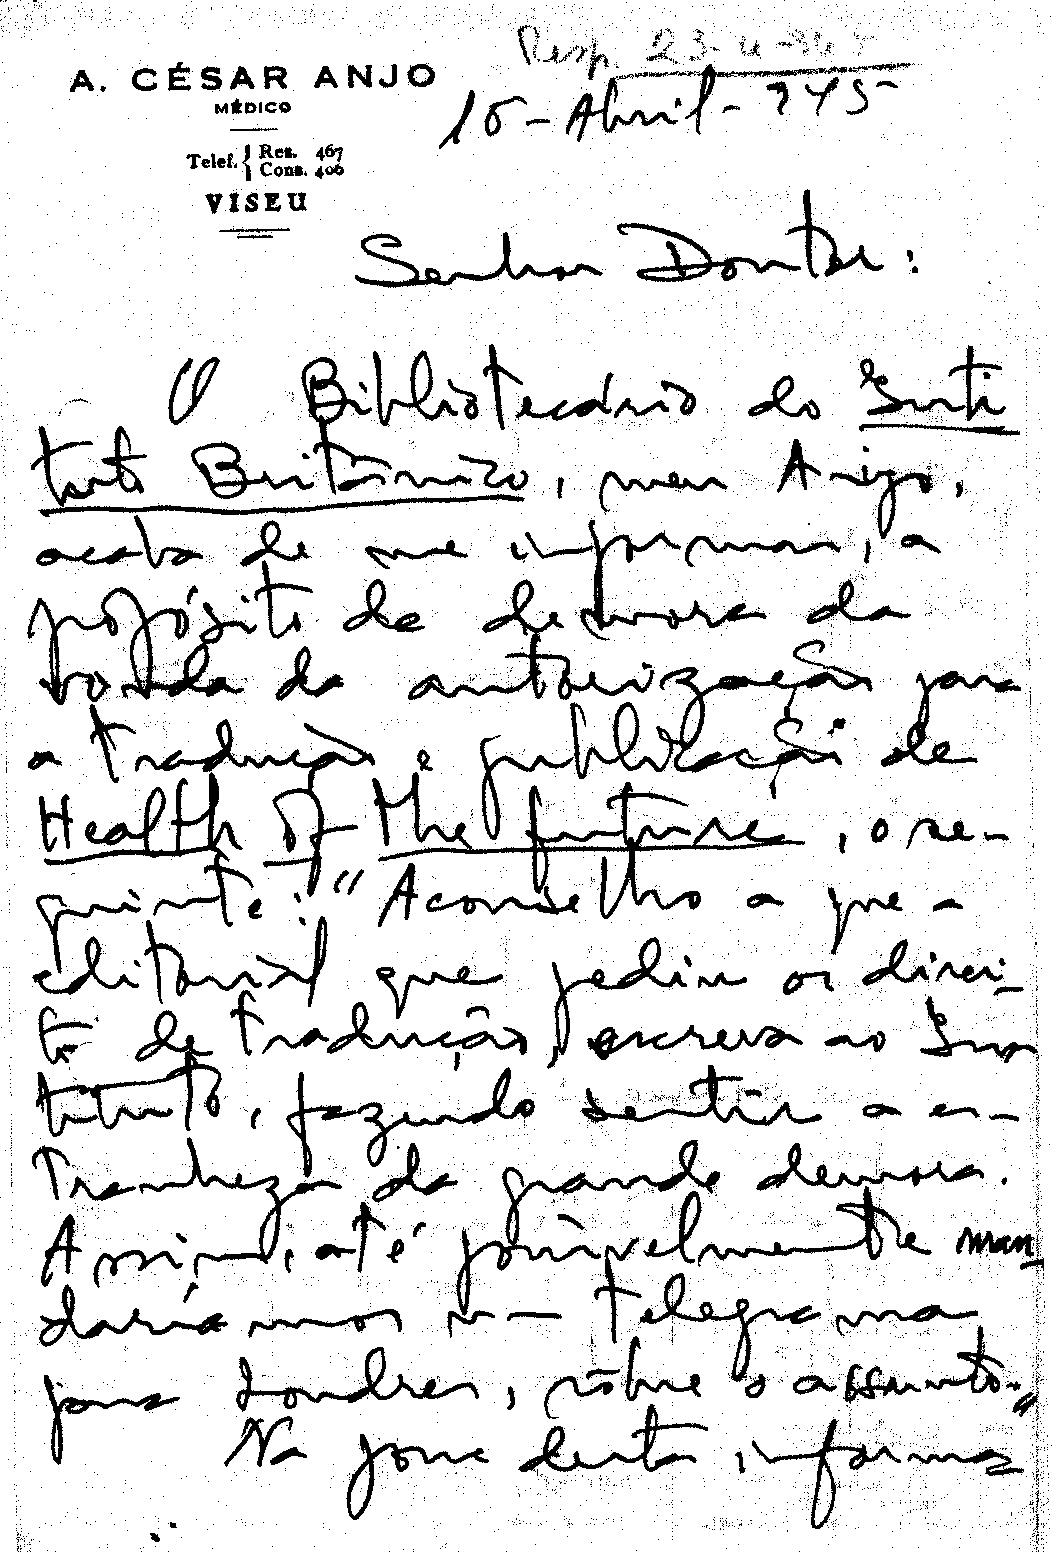 Resp. 23-4-945
A. CÉSAR ANJO
MÉDICO
Telef. { Res. 467
Cons. 406
VISEU
16-Abril-945
Senhor Doutor:
O Bibliotecário do Insti
tuto Británico, meu Amigo,
acaba de me informar, a
propósito da demora da
vinda da autorização para
a tradução e publicação de
Health of the future, o se-
guinte: "Aconselho a que a
editorial que pediu os direi-
tos de tradução, escreva ao Ins
tituto, fazendo sentir a es-
tranheza da grande demora.
Assim, até possivelmente man
daríamos um telegrama
para Londres, sôbre o assunto."
Na posse desta informa